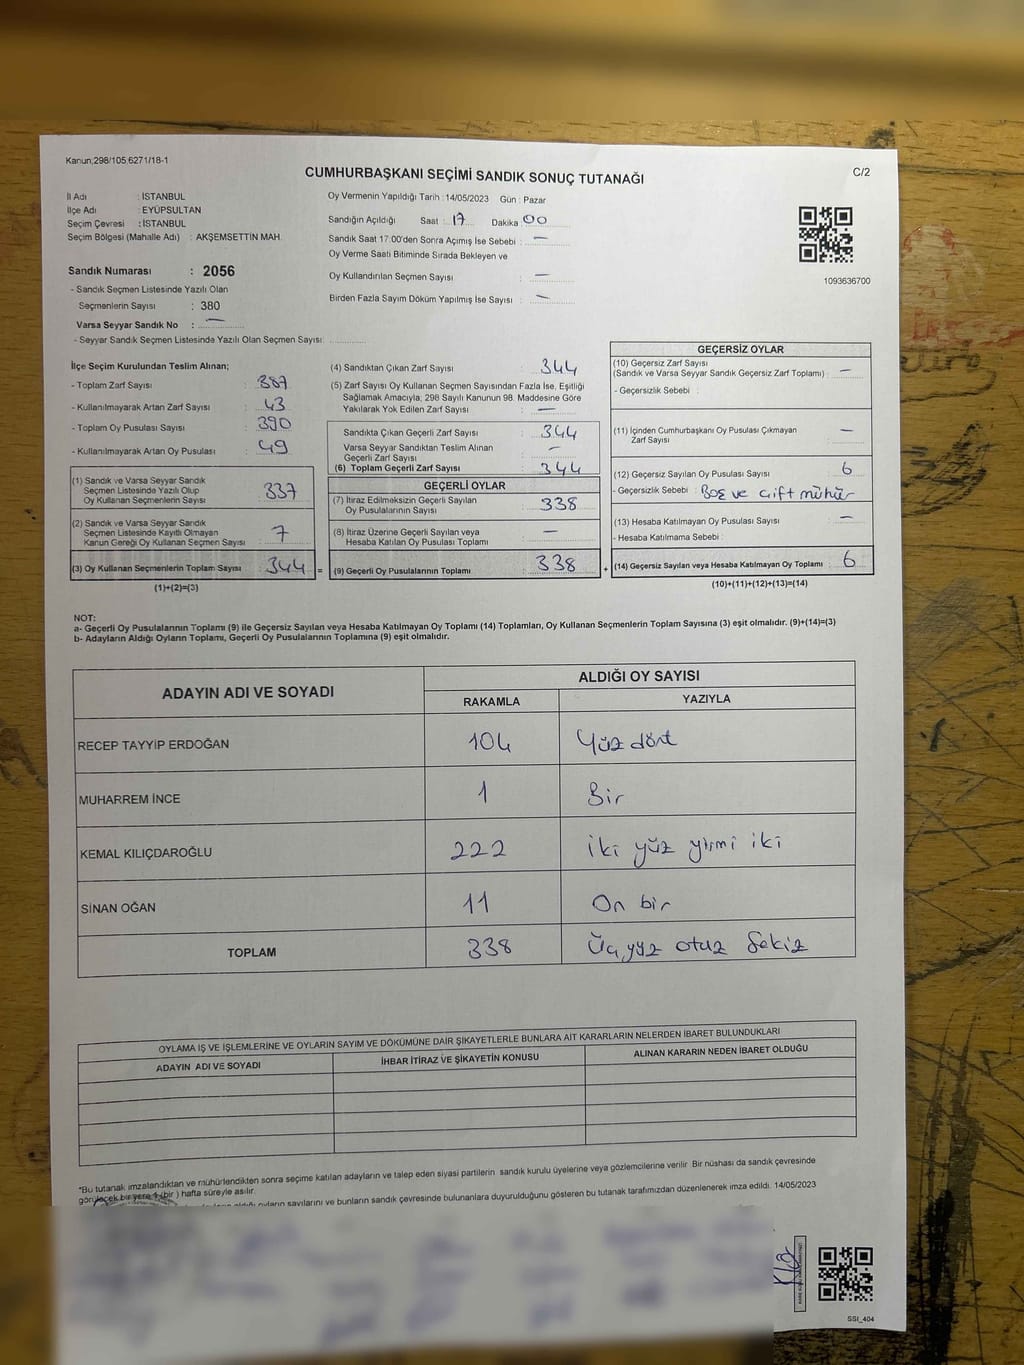 Kanun;298/105,6271/18-1
CUMHURBAŞKANI SEÇİMİ SANDIK SONUÇ TUTANAĞI
C/2
İl Adı : İSTANBUL
İlçe Adı : EYÜPSULTAN
Seçim Çevresi : İSTANBUL
Seçim Bölgesi (Mahalle Adı) : AKŞEMSETTİN MAH.
Oy Vermenin Yapıldığı Tarih : 14/05/2023 Gün : Pazar
Sandığın Açıldığı Saat : 17 Dakika : 00
Sandık Saat 17:00'den Sonra Açımış İse Sebebi : —
Oy Verme Saati Bitiminde Sırada Bekleyen ve
Oy Kullandırılan Seçmen Sayısı : —
Birden Fazla Sayım Döküm Yapılmış İse Sayısı : —
1093636700
Sandık Numarası : 2056
- Sandık Seçmen Listesinde Yazılı Olan
Seçmenlerin Sayısı : 380
Varsa Seyyar Sandık No : —
- Seyyar Sandık Seçmen Listesinde Yazılı Olan Seçmen Sayısı :
İlçe Seçim Kurulundan Teslim Alınan;
- Toplam Zarf Sayısı : 387
- Kullanılmayarak Artan Zarf Sayısı : 43
- Toplam Oy Pusulası Sayısı : 390
- Kullanılmayarak Artan Oy Pusulası : 49
(1) Sandık ve Varsa Seyyar Sandık
Seçmen Listesinde Yazılı Olup
Oy Kullanan Seçmenlerin Sayısı : 337
(2) Sandık ve Varsa Seyyar Sandık
Seçmen Listesinde Kayıtlı Olmayan
Kanun Gereği Oy Kullanan Seçmen Sayısı : 7
(3) Oy Kullanan Seçmenlerin Toplam Sayısı : 344 =
(1)+(2)=(3)
(4) Sandıktan Çıkan Zarf Sayısı : 344
(5) Zarf Sayısı Oy Kullanan Seçmen Sayısından Fazla İse, Eşitliği
Sağlamak Amacıyla; 298 Sayılı Kanunun 98. Maddesine Göre
Yakılarak Yok Edilen Zarf Sayısı : —
Sandıkta Çıkan Geçerli Zarf Sayısı : 344
Varsa Seyyar Sandıktan Teslim Alınan
Geçerli Zarf Sayısı : —
(6) Toplam Geçerli Zarf Sayısı : 344
GEÇERLİ OYLAR
(7) İtiraz Edilmeksizin Geçerli Sayılan
Oy Pusulalarının Sayısı : 338
(8) İtiraz Üzerine Geçerli Sayılan veya
Hesaba Katılan Oy Pusulası Toplamı : —
(9) Geçerli Oy Pusulalarının Toplamı : 338 +
GEÇERSİZ OYLAR
(10) Geçersiz Zarf Sayısı
(Sandık ve Varsa Seyyar Sandık Geçersiz Zarf Toplamı) : —
- Geçersizlik Sebebi :
(11) İçinden Cumhurbaşkanı Oy Pusulası Çıkmayan
Zarf Sayısı : —
(12) Geçersiz Sayılan Oy Pusulası Sayısı : 6
- Geçersizlik Sebebi : Boş ve çift mühür
(13) Hesaba Katılmayan Oy Pusulası Sayısı : —
- Hesaba Katılmama Sebebi :
(14) Geçersiz Sayılan veya Hesaba Katılmayan Oy Toplamı : 6
(10)+(11)+(12)+(13)=(14)
NOT:
a- Geçerli Oy Pusulalarının Toplamı (9) ile Geçersiz Sayılan veya Hesaba Katılmayan Oy Toplamı (14) Toplamları, Oy Kullanan Seçmenlerin Toplam Sayısına (3) eşit olmalıdır. (9)+(14)=(3)
b- Adayların Aldığı Oyların Toplamı, Geçerli Oy Pusulalarının Toplamına (9) eşit olmalıdır.
ADAYIN ADI VE SOYADI ALDIĞI OY SAYISI
RAKAMLA YAZIYLA
RECEP TAYYİP ERDOĞAN 104 Yüz dört
MUHARREM İNCE 1 Bir
KEMAL KILIÇDAROĞLU 222 iki yüz yirmi iki
SİNAN OĞAN 11 On bir
TOPLAM 338 Üçyüz otuz Sekiz
OYLAMA İŞ VE İŞLEMLERİNE VE OYLARIN SAYIM VE DÖKÜMÜNE DAİR ŞİKAYETLERLE BUNLARA AİT KARARLARIN NELERDEN İBARET BULUNDUKLARI
ADAYIN ADI VE SOYADI İHBAR İTİRAZ VE ŞİKAYETİN KONUSU ALINAN KARARIN NEDEN İBARET OLDUĞU
*Bu tutanak imzalandıktan ve mühürlendikten sonra seçime katılan adayların ve talep eden siyasi partilerin sandık kurulu üyelerine veya gözlemcilerine verilir. Bir nüshası da sandık çevresinde
görülecek bir yere 1 (bir) hafta süreyle asılır.
oyların sayılarını ve bunların sandık çevresinde bulunanlara duyurulduğunu gösteren bu tutanak tarafımızdan düzenlenerek imza edildi. 14/05/2023
SSI_404